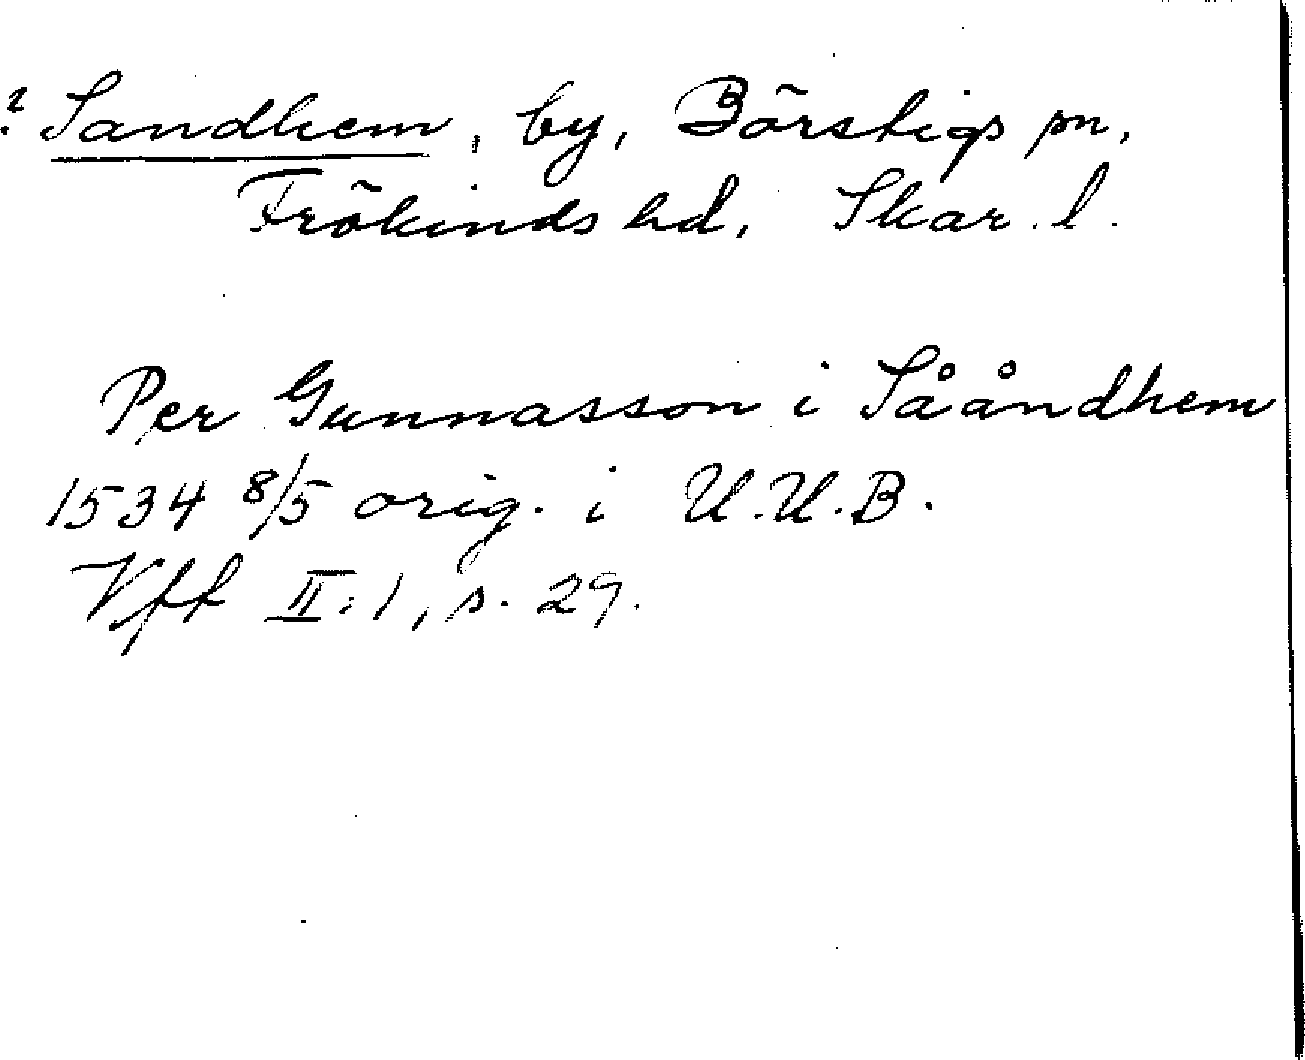 ? Sandhem, by, Börstigs sn,
Frökinds hd, Skar. l.
Per Gunnasson i Sååndhem
1534 8/5 orig. i U.U.B.
Vff II:1, s. 29.